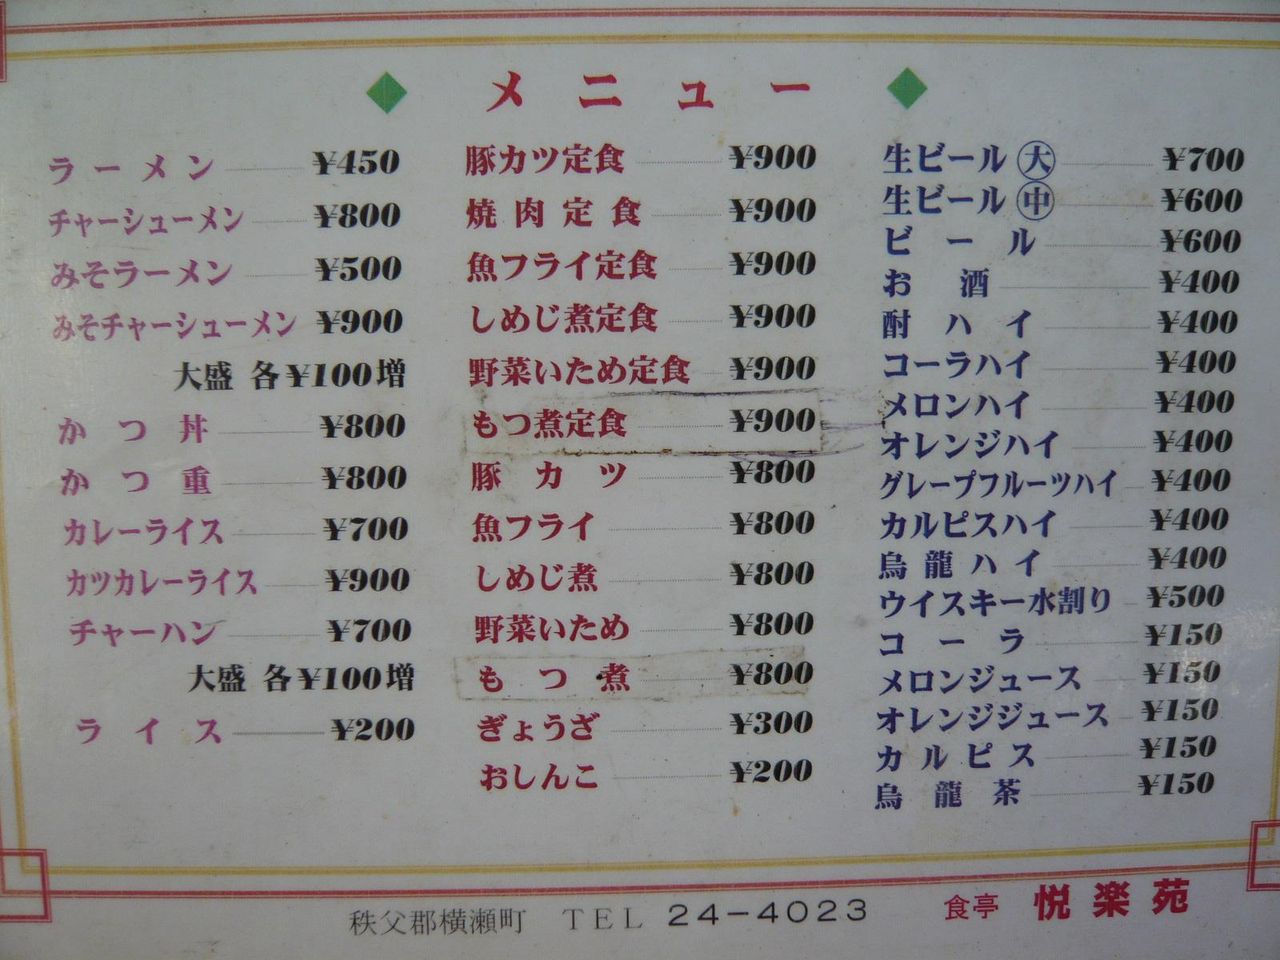 メニュー
ラーメン ¥450
チャーシューメン ¥800
みそラーメン ¥500
みそチャーシューメン ¥900
大盛 各¥100増
かつ丼 ¥800
かつ重 ¥800
カレーライス ¥700
カツカレーライス ¥900
チャーハン ¥700
大盛 各¥100増
ライス ¥200
豚カツ定食 ¥900
焼肉定食 ¥900
魚フライ定食 ¥900
しめじ煮定食 ¥900
野菜いため定食 ¥900
もつ煮定食 ¥900
豚カツ ¥800
魚フライ ¥800
しめじ煮 ¥800
野菜いため ¥800
もつ煮 ¥800
ぎょうざ ¥300
おしんこ ¥200
生ビール㊅ ¥700
生ビール㊥ ¥600
ビール ¥600
お酒 ¥400
酎ハイ ¥400
コーラハイ ¥400
メロンハイ ¥400
オレンジハイ ¥400
グレープフルーツハイ ¥400
カルピスハイ ¥400
烏龍ハイ ¥400
ウイスキー水割り ¥500
コーラ ¥150
メロンジュース ¥150
オレンジジュース ¥150
カルピス ¥150
烏龍茶 ¥150
秩父郡横瀬町 TEL 24-4023
食亭 悦楽苑